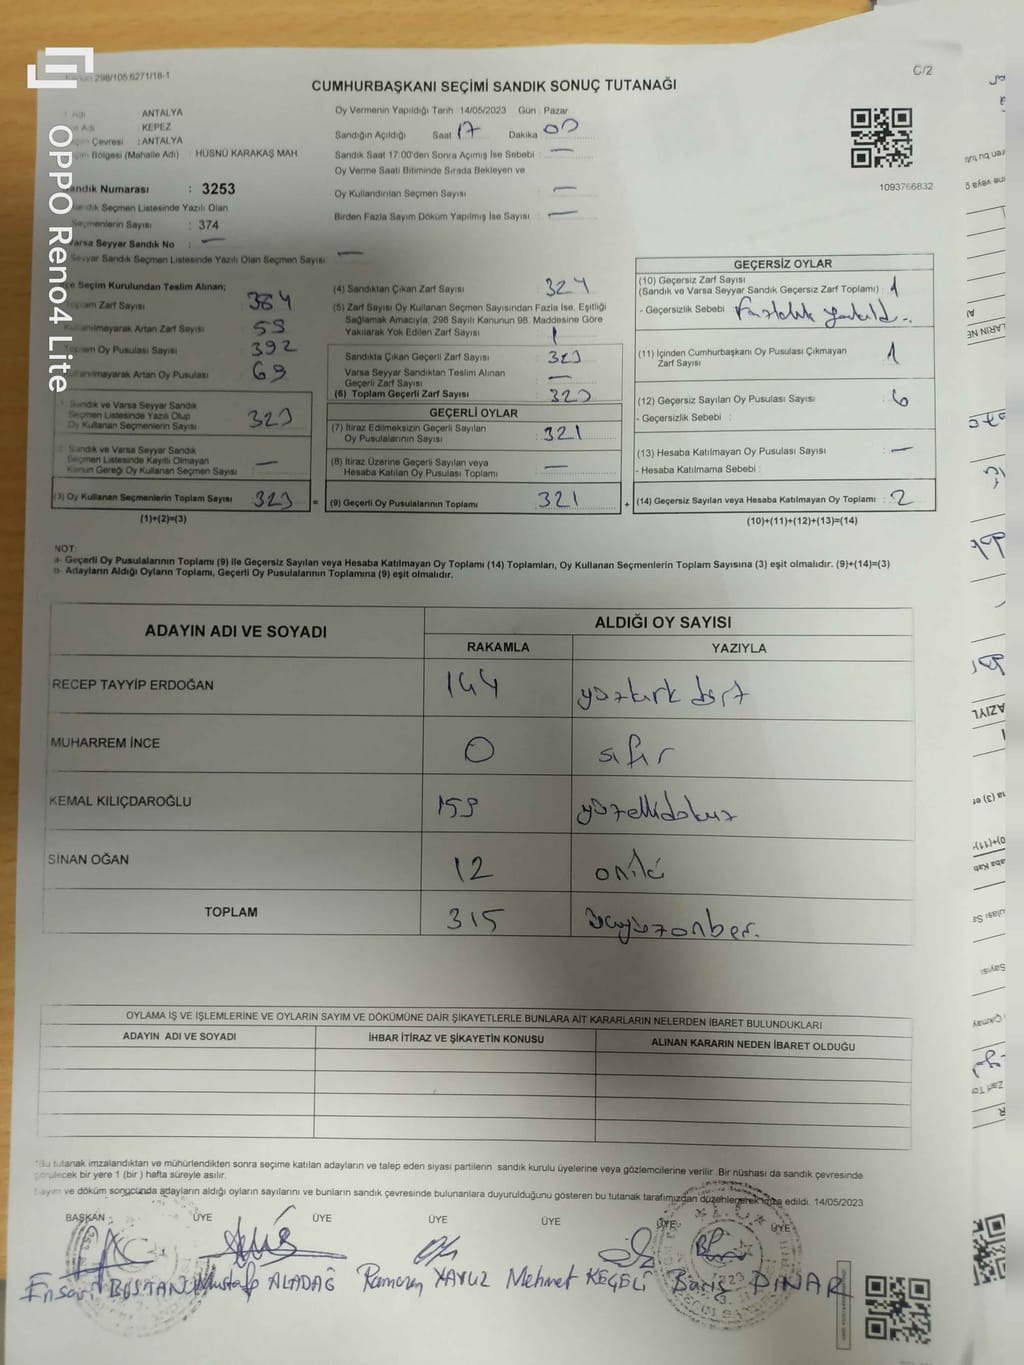 298/105.6271/18-1
C/2
CUMHURBAŞKANI SEÇİMİ SANDIK SONUÇ TUTANAĞI
ANTALYA
KEPEZ
Çevresi : ANTALYA
Bölgesi (Mahalle Adı) : HÜSNÜ KARAKAŞ MAH.
Sandık Numarası : 3253
Sandık Seçmen Listesinde Yazılı Olan
Seçmenlerin Sayısı : 374
Varsa Seyyar Sandık No : —
Seyyar Sandık Seçmen Listesinde Yazılı Olan Seçmen Sayısı —
Oy Vermenin Yapıldığı Tarih : 14/05/2023 Gün : Pazar
Sandığın Açıldığı Saat 17 Dakika 00
Sandık Saat 17:00'den Sonra Açılmış İse Sebebi : —
Oy Verme Saati Bitiminde Sırada Bekleyen ve
Oy Kullandırılan Seçmen Sayısı —
Birden Fazla Sayım Döküm Yapılmış İse Sayısı : —
1093766832
İlçe Seçim Kurulundan Teslim Alınan;
Toplam Zarf Sayısı 384
Kullanılmayarak Artan Zarf Sayısı 59
Toplam Oy Pusulası Sayısı 392
Kullanılmayarak Artan Oy Pusulası 69
1. Sandık ve Varsa Seyyar Sandık
Seçmen Listesinde Yazılı Olup
Oy Kullanan Seçmenlerin Sayısı 323
Sandık ve Varsa Seyyar Sandık
Seçmen Listesinde Kayıtlı Olmayan
Kanun Gereği Oy Kullanan Seçmen Sayısı —
(3) Oy Kullanan Seçmenlerin Toplam Sayısı 323 =
(1)+(2)=(3)
(4) Sandıktan Çıkan Zarf Sayısı : 324
(5) Zarf Sayısı Oy Kullanan Seçmen Sayısından Fazla İse, Eşitliği
Sağlamak Amacıyla, 298 Sayılı Kanunun 98. Maddesine Göre
Yakılarak Yok Edilen Zarf Sayısı 1
Sandıkta Çıkan Geçerli Zarf Sayısı : 323
Varsa Seyyar Sandıktan Teslim Alınan
Geçerli Zarf Sayısı —
(6) Toplam Geçerli Zarf Sayısı : 323
GEÇERLİ OYLAR
(7) İtiraz Edilmeksizin Geçerli Sayılan
Oy Pusulalarının Sayısı : 321
(8) İtiraz Üzerine Geçerli Sayılan veya
Hesaba Katılan Oy Pusulası Toplamı : —
(9) Geçerli Oy Pusulalarının Toplamı 321 +
GEÇERSİZ OYLAR
(10) Geçersiz Zarf Sayısı
(Sandık ve Varsa Seyyar Sandık Geçersiz Zarf Toplamı) : 1
- Geçersizlik Sebebi : Fazlalık yakıldı.
(11) İçinden Cumhurbaşkanı Oy Pusulası Çıkmayan
Zarf Sayısı : 1
(12) Geçersiz Sayılan Oy Pusulası Sayısı : 6
- Geçersizlik Sebebi :
(13) Hesaba Katılmayan Oy Pusulası Sayısı : —
- Hesaba Katılmama Sebebi :
(14) Geçersiz Sayılan veya Hesaba Katılmayan Oy Toplamı : 2
(10)+(11)+(12)+(13)=(14)
NOT:
a- Geçerli Oy Pusulalarının Toplamı (9) ile Geçersiz Sayılan veya Hesaba Katılmayan Oy Toplamı (14) Toplamları, Oy Kullanan Seçmenlerin Toplam Sayısına (3) eşit olmalıdır. (9)+(14)=(3)
b- Adayların Aldığı Oyların Toplamı, Geçerli Oy Pusulalarının Toplamına (9) eşit olmalıdır.
ADAYIN ADI VE SOYADI
ALDIĞI OY SAYISI
RAKAMLA
YAZIYLA
RECEP TAYYİP ERDOĞAN 144 yüzkırk dört
MUHARREM İNCE 0 sıfır
KEMAL KILIÇDAROĞLU 159 yüzellidokuz
SİNAN OĞAN 12 oniki
TOPLAM 315 üçyüzonbeş.
OYLAMA İŞ VE İŞLEMLERİNE VE OYLARIN SAYIM VE DÖKÜMÜNE DAİR ŞİKAYETLERLE BUNLARA AİT KARARLARIN NELERDEN İBARET BULUNDUKLARI
ADAYIN ADI VE SOYADI
İHBAR İTİRAZ VE ŞİKAYETİN KONUSU
ALINAN KARARIN NEDEN İBARET OLDUĞU
*Bu tutanak imzalandıktan ve mühürlendikten sonra seçime katılan adayların ve talep eden siyasi partilerin sandık kurulu üyelerine veya gözlemcilerine verilir. Bir nüshası da sandık çevresinde
görülecek bir yere 1 (bir) hafta süreyle asılır.
Sayım ve döküm sonucunda adayların aldığı oyların sayılarını ve bunların sandık çevresinde bulunanlara duyurulduğunu gösteren bu tutanak tarafımızdan düzenlenerek imza edildi. 14/05/2023
BAŞKAN ÜYE ÜYE ÜYE ÜYE ÜYE ÜYE
Ensari BOSTAN Mustafa ALADAĞ Ramazan YAVUZ Mehmet KEÇELİ Barış PINAR
OPPO Reno4 Lite